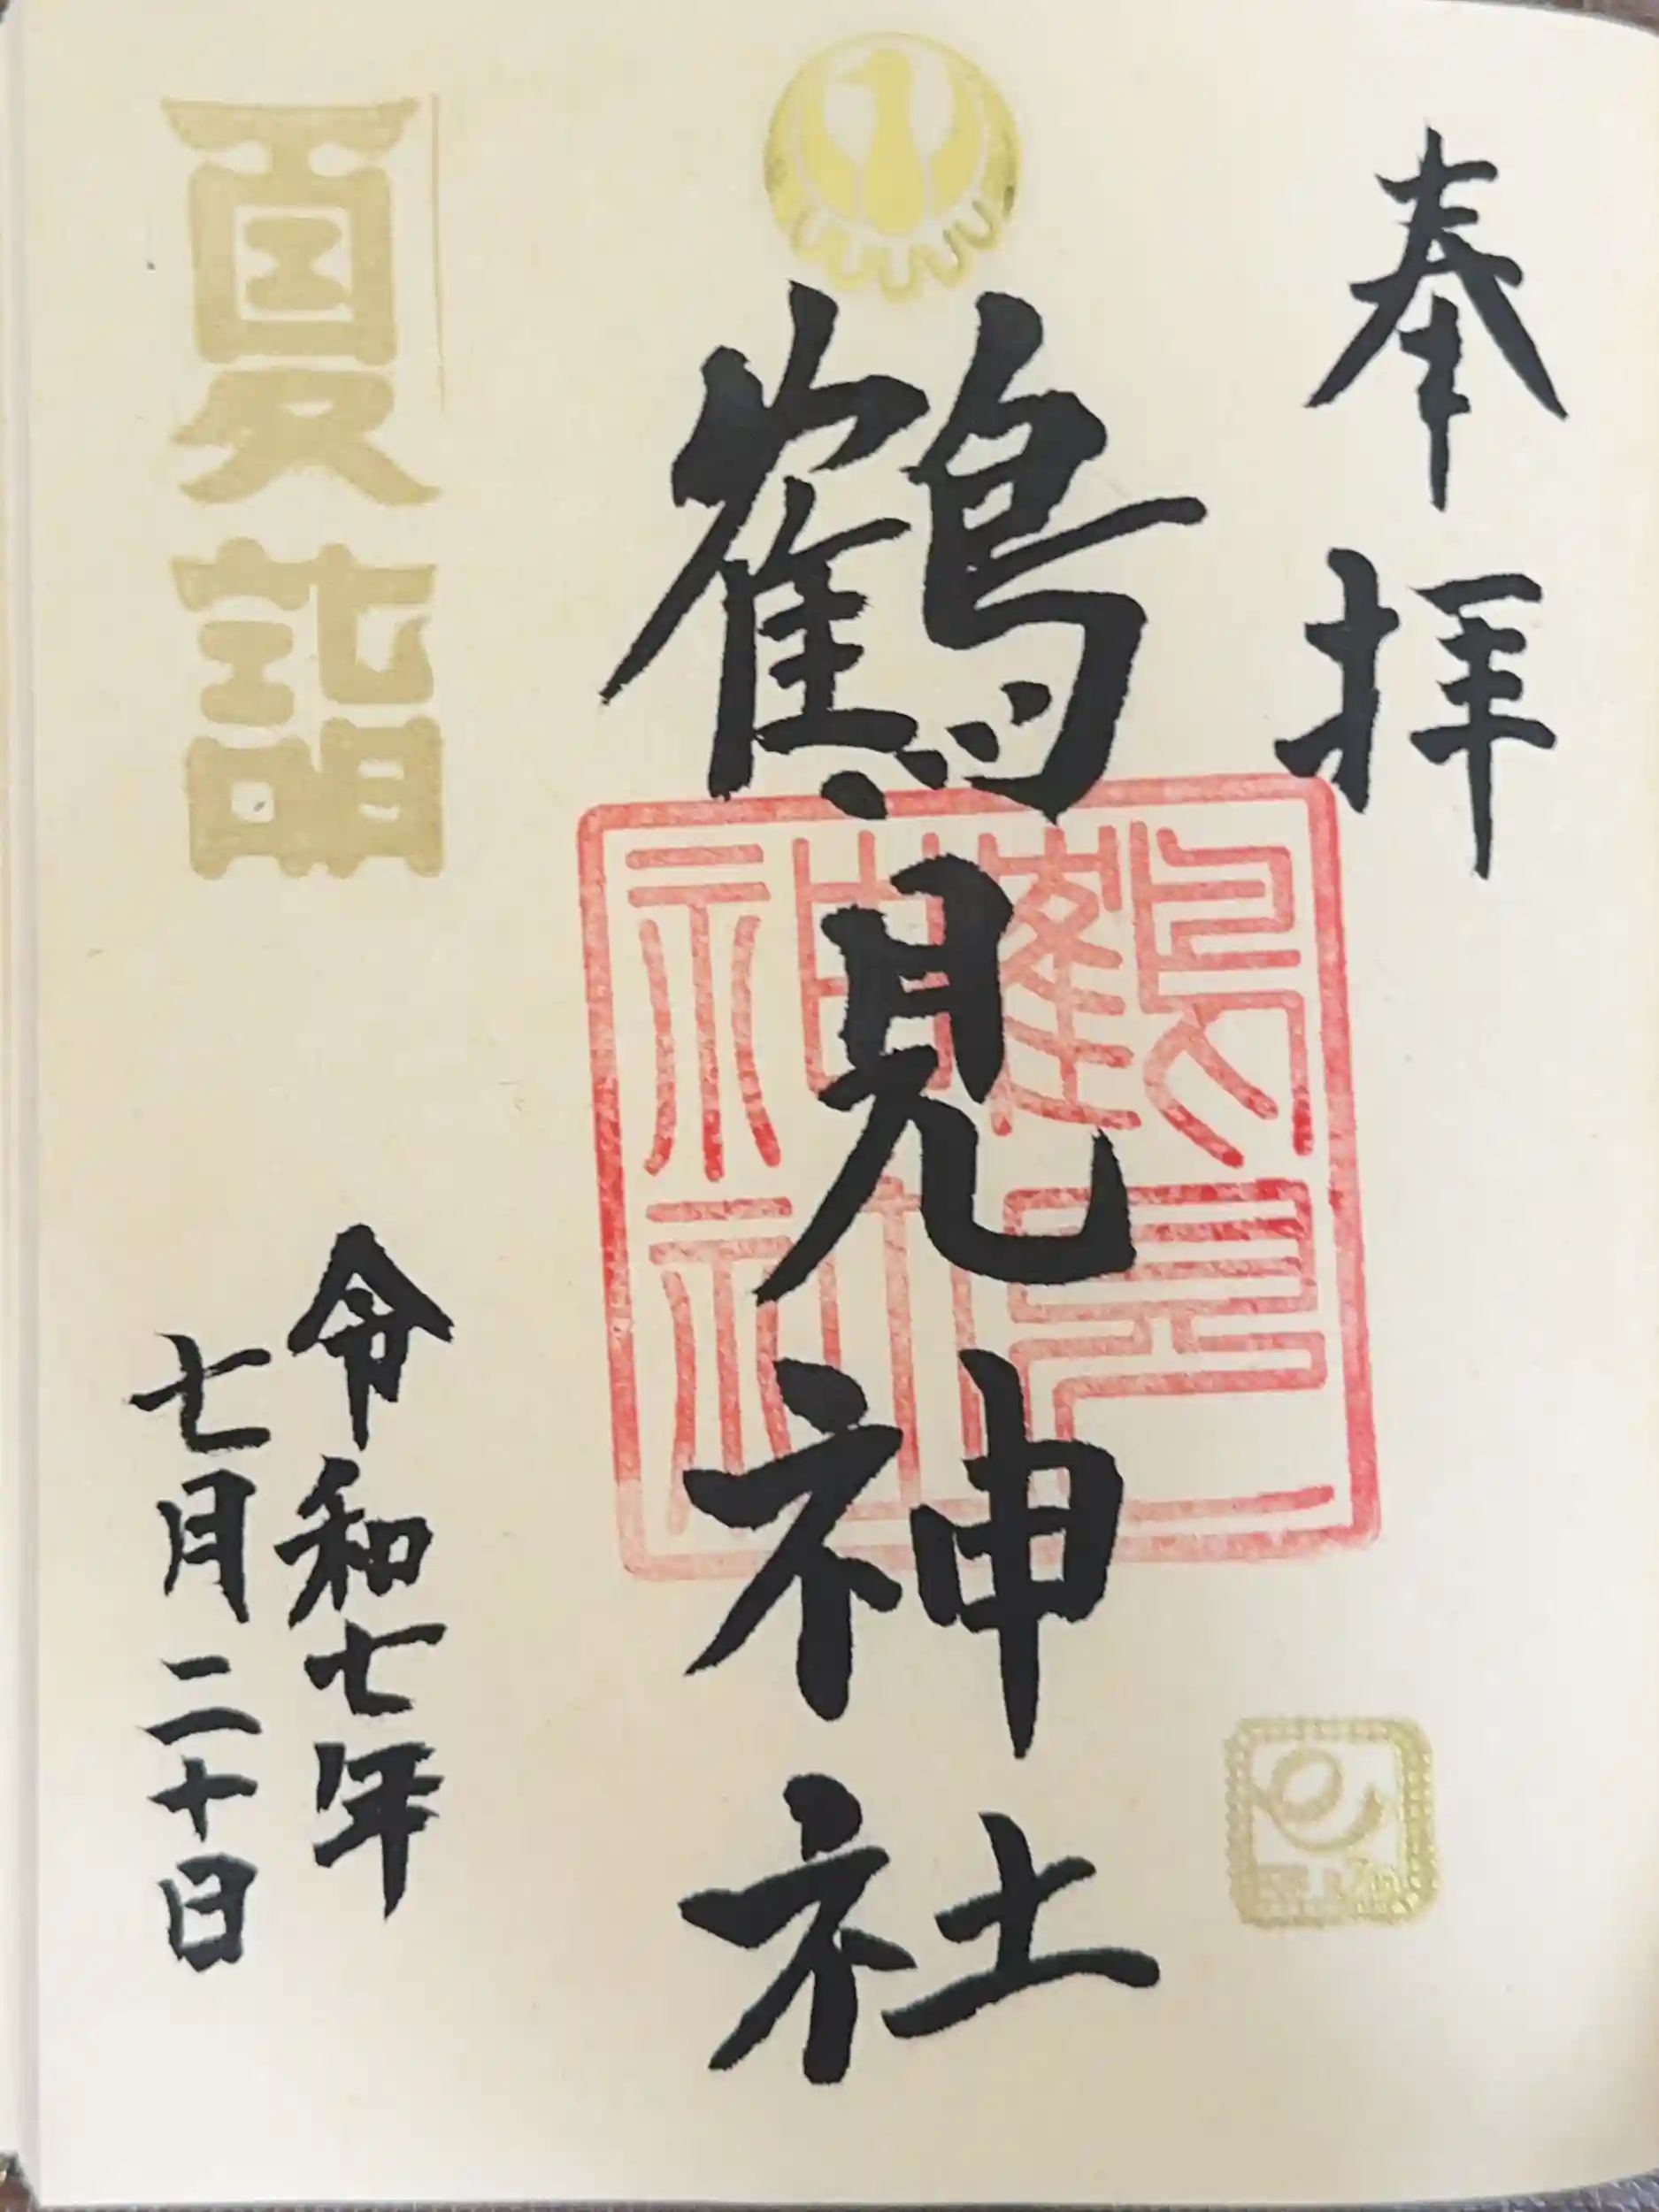 奉拝
鶴見神社
鶴見
神社
夏詣
令和七年
七月二十日